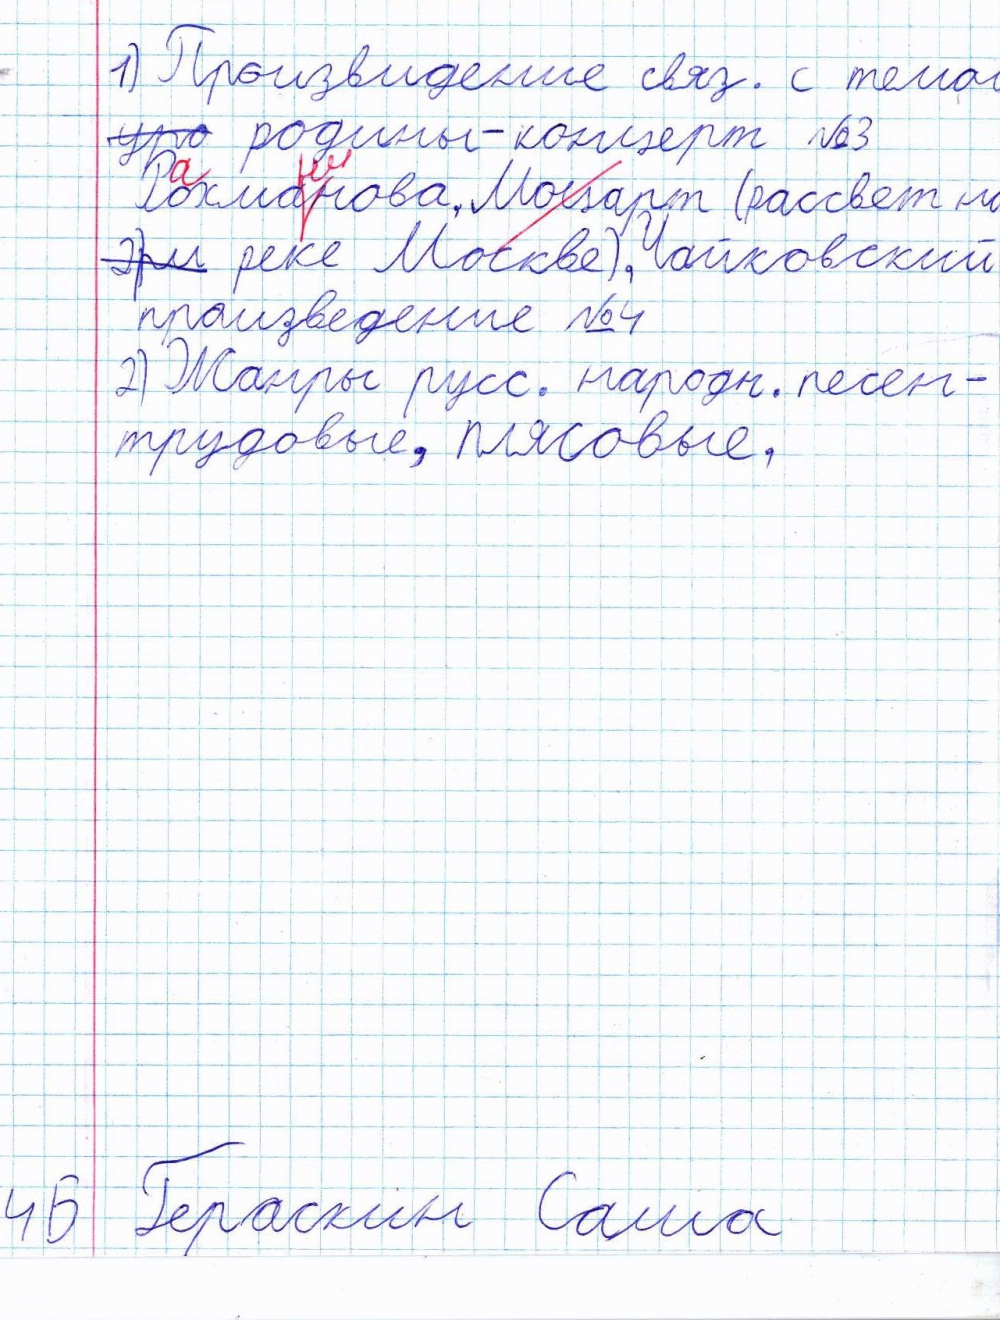 1) Произвидение связ. с темой
ута родины-концерт №3
Рохманова, Моцарт (рассвет на
реке Москве), Чайковский
произведение №4
2) Жанры русс. народн. песен-
трудовые, плясовые,
4Б Гераскин Саша